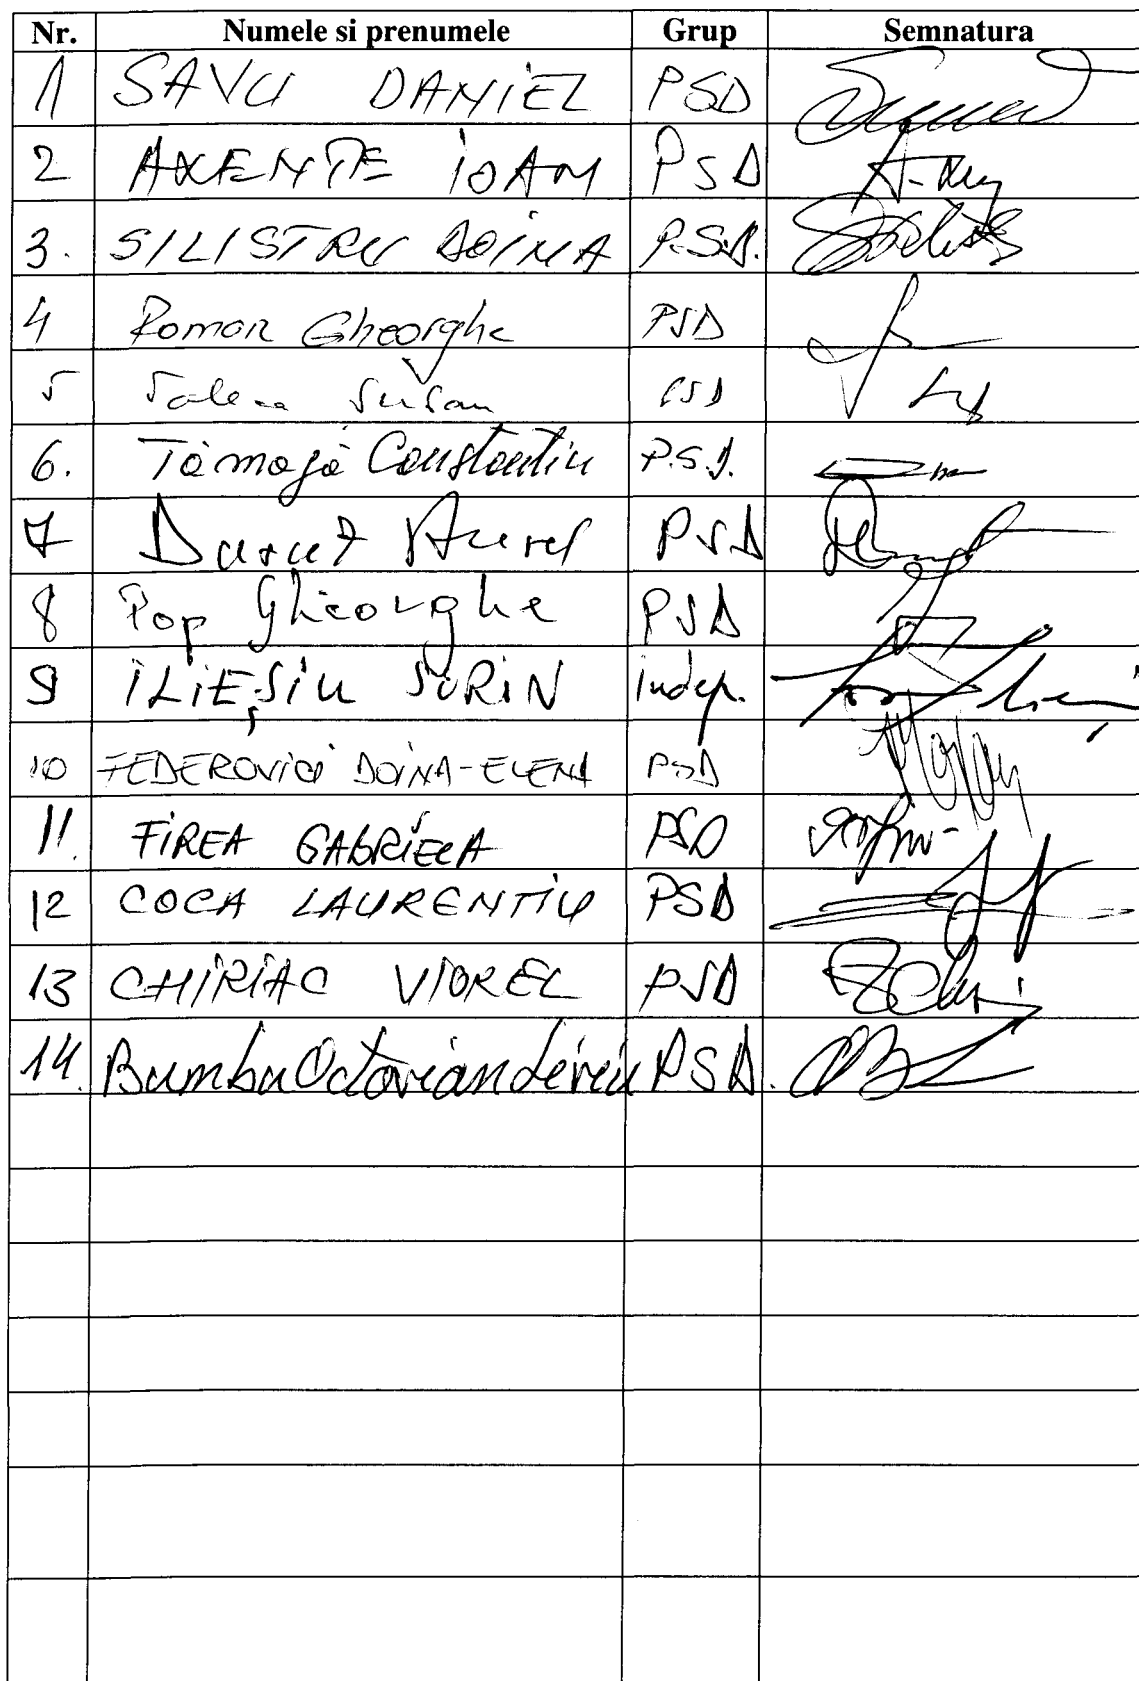 Nr. Numele si prenumele Grup Semnatura
1 SAVU DANIEL PSD
2 AXENTE IOAN PSD
3. SILISTRU DOINA P.S.D.
4 Roman Gheorghe PSD
5 PSD
6. Tămagă Constantin P.S.D.
7 Duruț Aurel PSD
8 Pop Gheorghe PSD
9 ILIEȘIU SORIN indep.
10 FEDEROVICI DOINA-ELENA PSD
11. FIREA GABRIELA PSD
12 COCA LAURENTIU PSD
13 CHIRIAC VIOREL PSD
14. Bumbu Octavian Liviu PSD.